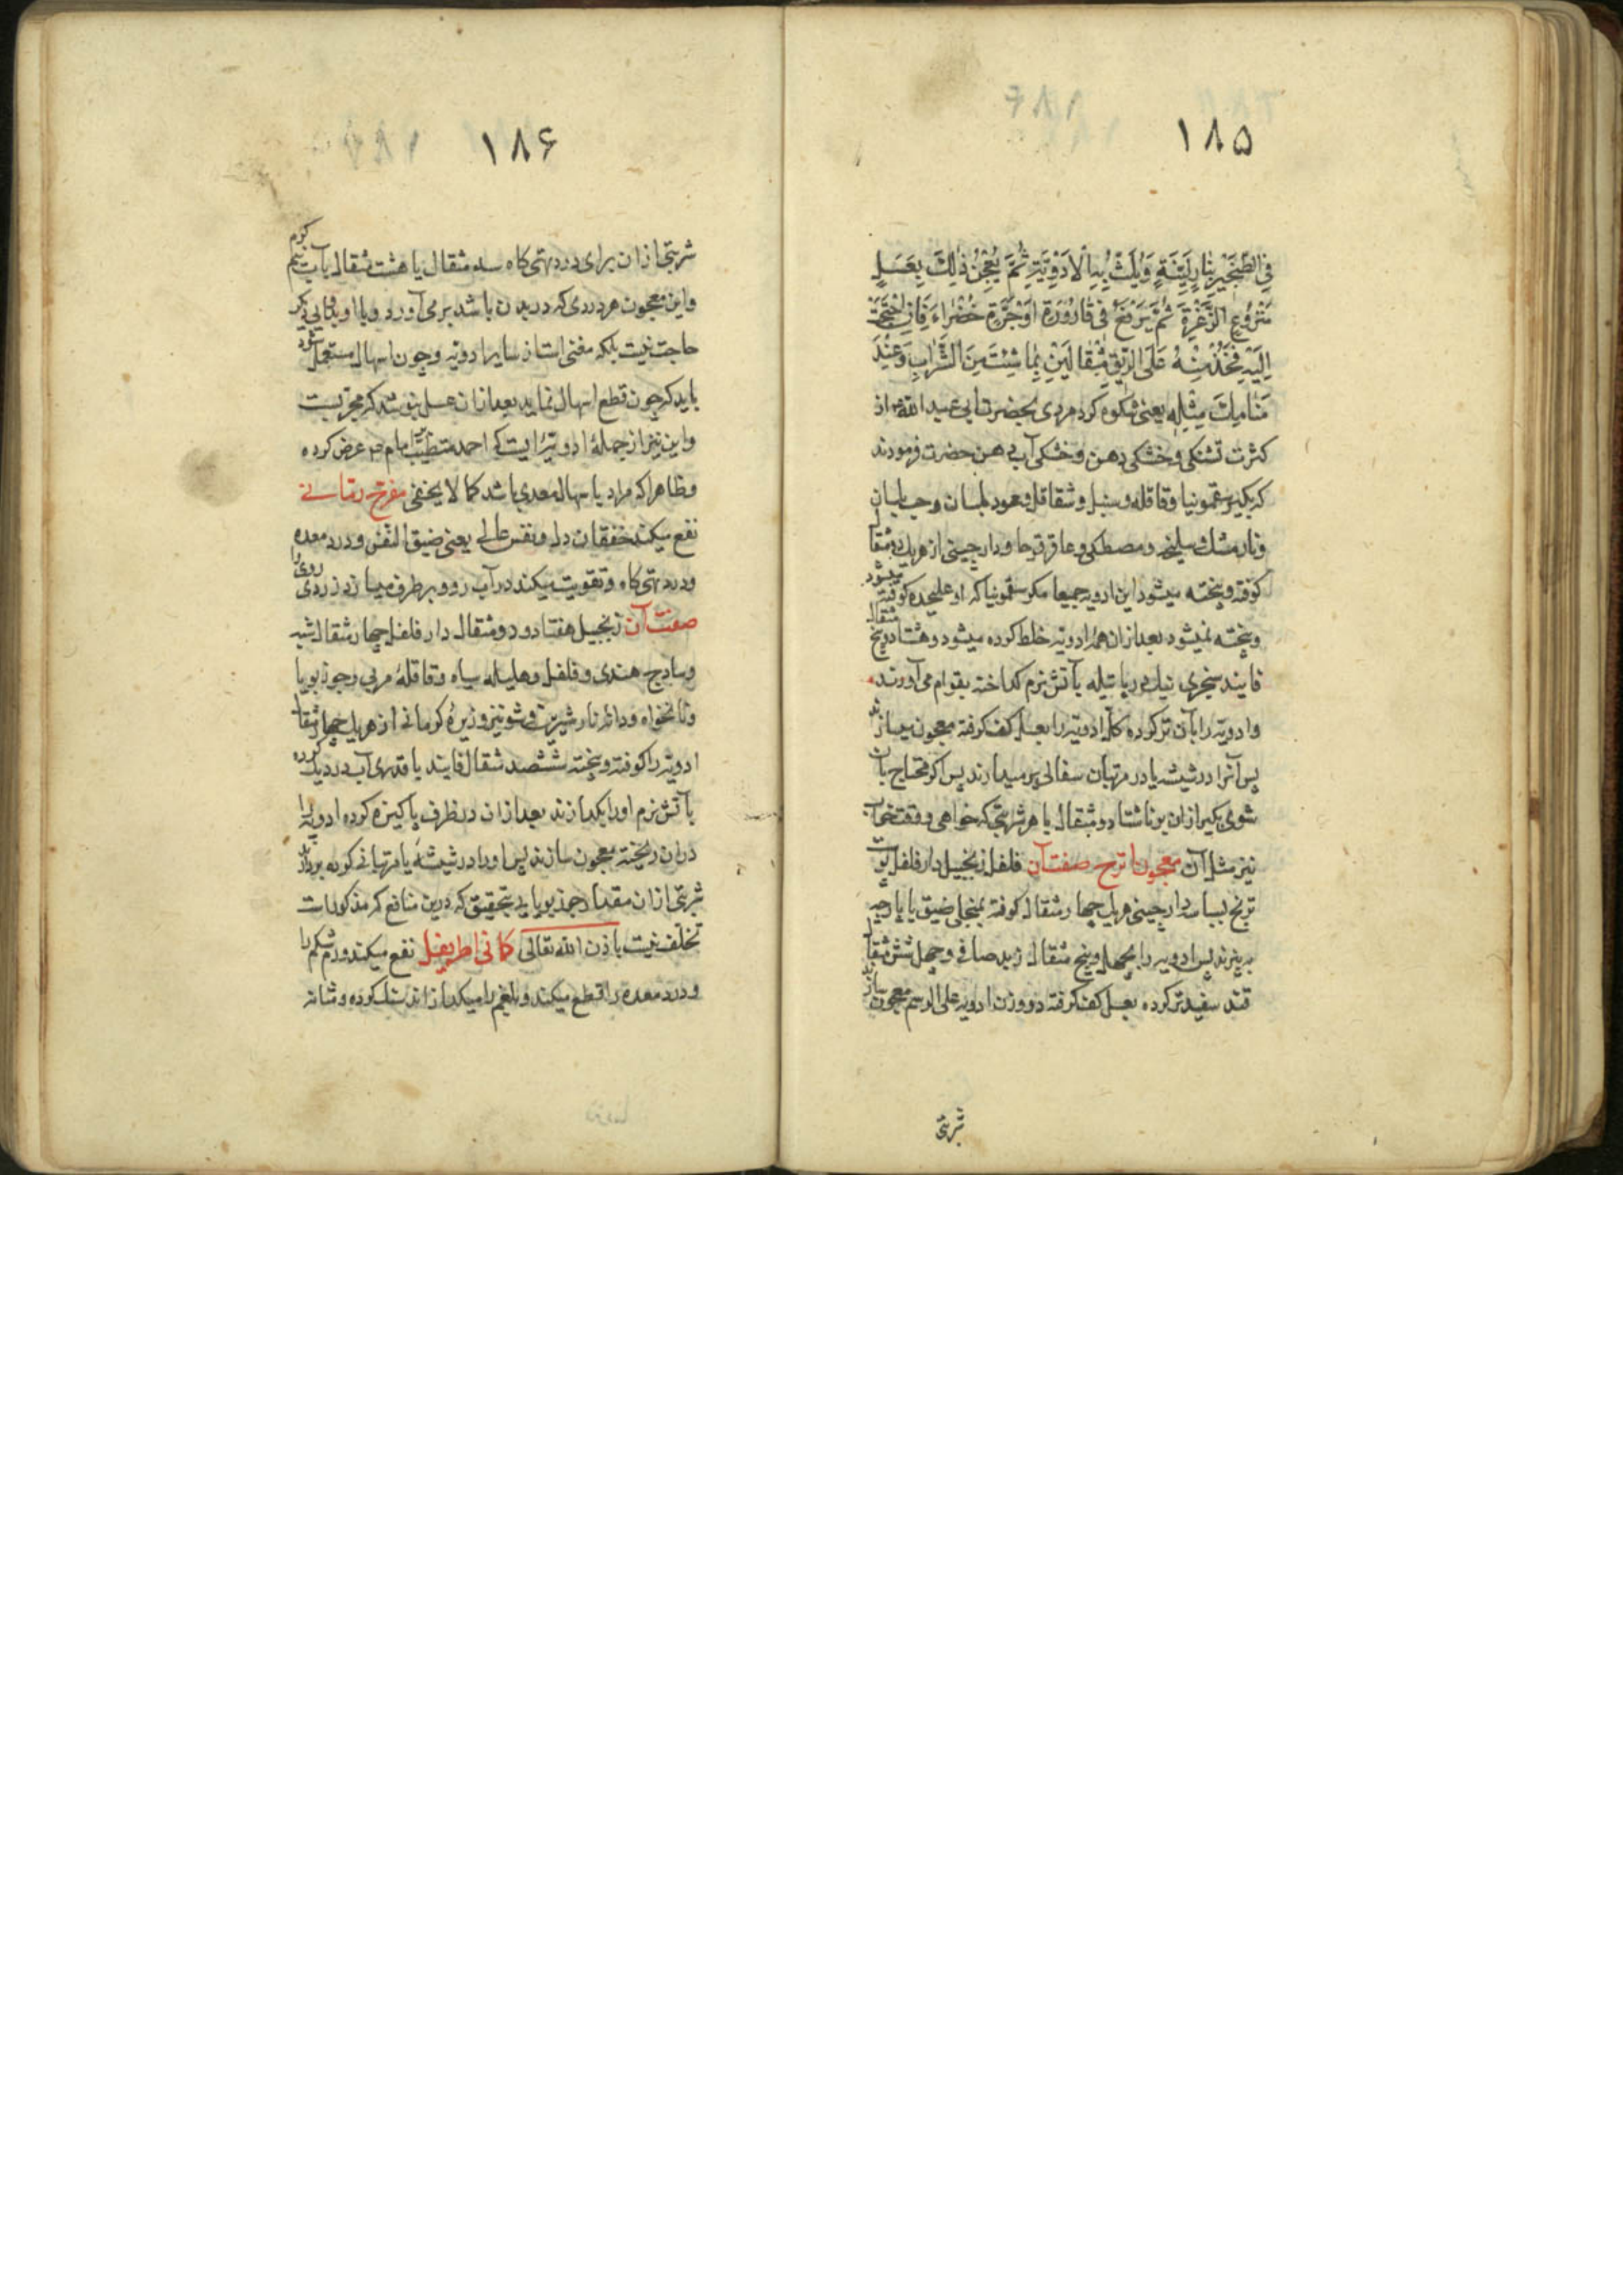 ١٨٥
فِی الطِّنْجَیْرِ بِنَارٍ لَیِّنَةٍ وَیُلَتُّ بِهِ الْاَدْوِیَةِ ثُمَّ یُعْجَنُ ذٰلِكَ بِعَسَلٍ
مَنْزُوْعِ الرَّغْوَةِ ثُمَّ یُرْفَعُ فِی قَارُوْرَةٍ اَوْجَرَّةٍ خَضْرَاءَ فَاِنِ احْتَجْتَ
اِلَیْهِ فَخُذْ مِنْهُ عَلَی الرِّیْقِ مِثْقَالَیْنِ بِمَا شِئْتَ مِنَ الشَّرَابِ وَعِنْدَ
مَنَامِكَ مِثْلِهِ یعنی شکوه کرد مردی بحضرت ابی عبد الله از
کثرت تشنکی وخشکی دهن وخشکی آب دهن حضرت فرمودند
که بکیر سقمونیا وقاقله وسنبل وشقاقل وعود بلسان وحب بلسان
ونارمشك وسلیخه ومصطکی وعاقرقرحا ودارچینی از هریك دو مثقال
کوفته وبیخته میشود این ادویه جمیعا مکر سقمونیا که او علیحده کوفته میشود
وبیخته نمیشود بعد ازان همه ادویه خلط کرده میشود وهشتاد وپنج مثقال
فایند سنجری نیك در پاتیله بآتش نرم کداخته بقوام می آورند
وادویه را بآن تر کرده کل ادویه را بعسل کف کرفته معجون میسازند
پس آنرا در شیشه یا در مرتبان سفالی پر میدارند پس اکر محتاج بآن
شوی بکیر ازان بر ناشتا دو مثقال با هر شربتی که خواهی ووقت خواب
نیز مثل آن معجون اترج صفت آن فلفل زنجبیل دار فلفل پوست
ترنج بسباسه دارچینی هریك چهار مثقال کوفته بمنخلی ضیق یا پارچه
به بیزند پس ادویه را بچهل وپنج مثقال زبد صافی وچهل شش مثقال
قند سفید تر کرده بعسل کف کرفته دو وزن ادویه علی الرسم معجون سازند
شربتی
١٨۶
شربتی ازان برای درد تهی کاه سه مثقال یا هشت مثقال بآب نیم کرم
واین معجون هر دردی که در بدن باشد برمی آورد وبا او بدوایی دیکر
حاجت نیست بلکه مغنی است از سایر ادویه وچون اسهال مستعمل شود
باید که چون قطع اسهال نماید بعد ازان عسل بنوشد که مجربست
واین نیز از جملهٔ ادویهٔ ایست که احمد متطبب بامام عرض کرده
وظاهرا که مراد باسهال معدی باشد کما لا یخفی مفرح رمانی
نفع میکند خفقان دل ونفس عالی یعنی ضیق النفس ودرد معده
ودرد تهی کاه وتقویت میکند در آب رو وبر طرف میسازد زردی روی را
صفت آن زنجبیل هفتاد ودو مثقال دار فلفل چهار مثقال شبه
وساذج هندی وفلفل وهلیله سیاه وقاقلهٔ مربی وجوز بویا
ونانخواه ودانه نار شیرین وشونیز وزیرهٔ کرمانی از هریك چهار مثقال
ادویه را کوفته وبیخته ششصد مثقال فایند با قدری آب در دیك کرده
بآتش نرم اورا بکدازند بعد ازان در ظرف پاکیزه کرده ادویه را
دران ریخته معجون سازند پس اورا در شیشهٔ یا مرتبانی کرده بردارند
شربتی ازان مقدار جوز بویا یی بتحقیق که درین منافع که مذکورات
تخلف نیست باذن الله تعالی کمانی اطریفل نفع میکند ورم شکم را
ودرد معده را قطع میکند وبلغم را میکدازاند سنك کرده ومثانه